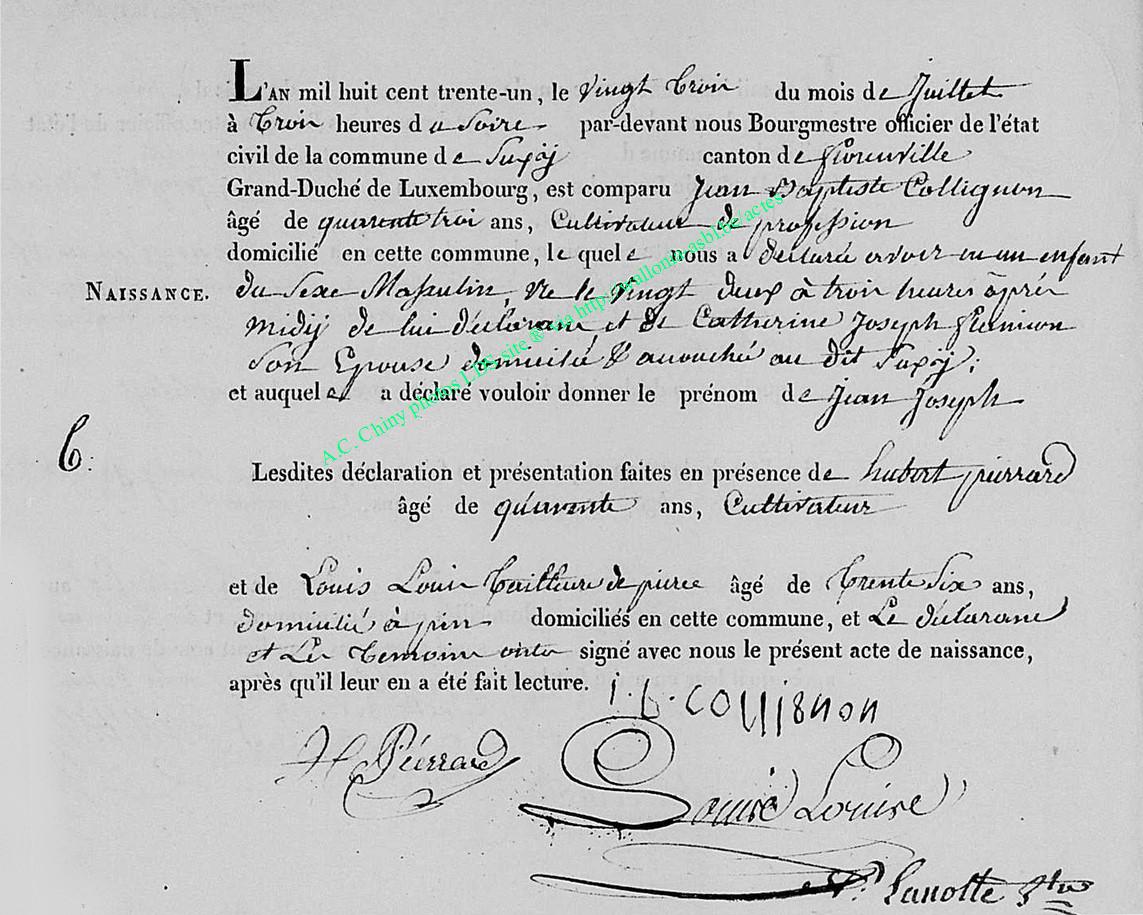 L'AN mil huit cent trente-un, le vingt troi du mois de Juillet
à Troi heures d u Soire par-devant nous Bourgmestre officier de l'état
civil de la commune de Suxÿ canton de florenville
Grand-Duché de Luxembourg, est comparu Jean Baptiste Collignon
âgé de quarente troi ans, Cultivateur de profession
domicilié en cette commune, le quel e nous a déclarée avoir eu un enfant
NAISSANCE.
du Sexe Masculin, le vingt deux à troi heures après
midÿ de lui déclarant et de Catherine Joseph
Son Epouse domicilié & au dit Suxÿ;
et auquel a déclaré vouloir donner le prénom de Jean Joseph
6:
Lesdites déclaration et présentation faites en présence de hubert pierrard
âgé de quarente ans, Cultivateur
et de Louis Louis Tailleure de pierre âgé de Trente Six ans,
domicilié à domiciliés en cette commune, et Le déclarant
et Les Temoins signé avec nous le présent acte de naissance,
après qu'il leur en a été fait lecture.
i. b. collignon
H Piérrard
Louis Louise
Lanotte
A.C. Chiny photos LDS site ® via http://wallonia-asbl.be/actes